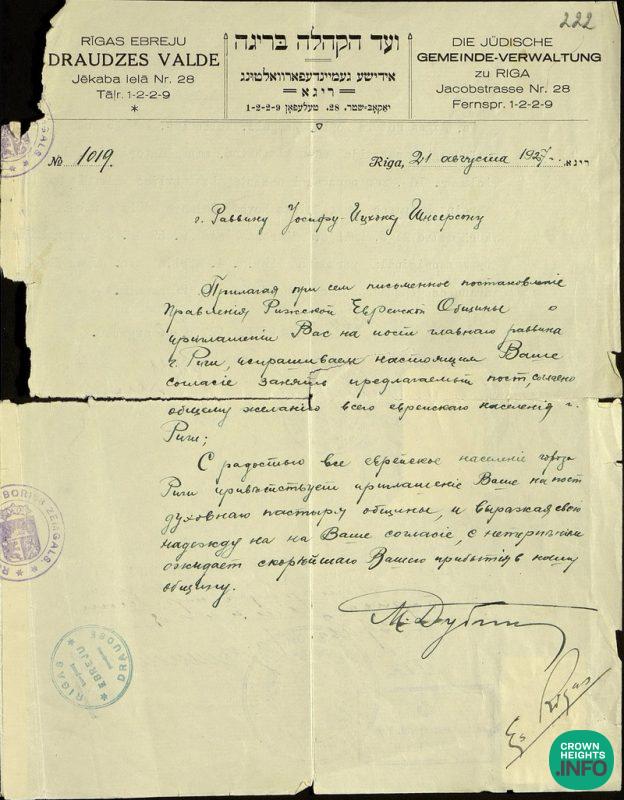 222
RĪGAS EBREJU
DRAUDZES VALDE
Jēkaba ielā Nr. 28
Tāļr. 1-2-2-9
ועד הקהלה בריגה
אידישע געמיינדעפארוואלטונג
ריגא
יאקאב-שטר. 28. טעלעפאן 1-2-2-9
DIE JÜDISCHE
GEMEINDE-VERWALTUNG
zu RIGA
Jacobstrasse Nr. 28
Fernspr. 1-2-2-9
№ 1019.
Riga, 21 августа 1927 ריגא.
г. Раввину Іосифу-Ицхоку Шнеерсону
Прилагая при сем письменное постановленіе
Правленія Рижской Еврейской Общины о
приглашеніи Вас на пост главнаго раввина
г. Риги, испрашиваем настоящим Ваше
согласіе занять предлагаемый пост, согласно
общему желанію всего еврейскаго населенія г.
Риги;
С радостью все еврейское населеніе города
Риги привѣтствует приглашеніе Ваше на пост
духовнаго пастыря общины, и выражая свою
надежду на на Ваше согласіе, с нетерпѣніем
ожидает скорѣйшаго Вашего прибытія в нашу
общину.
М. Дубин
RĪGAS EBREJU DRAUDZE
BORISS ZEINGALS
CROWN
HEIGHTS
.INFO